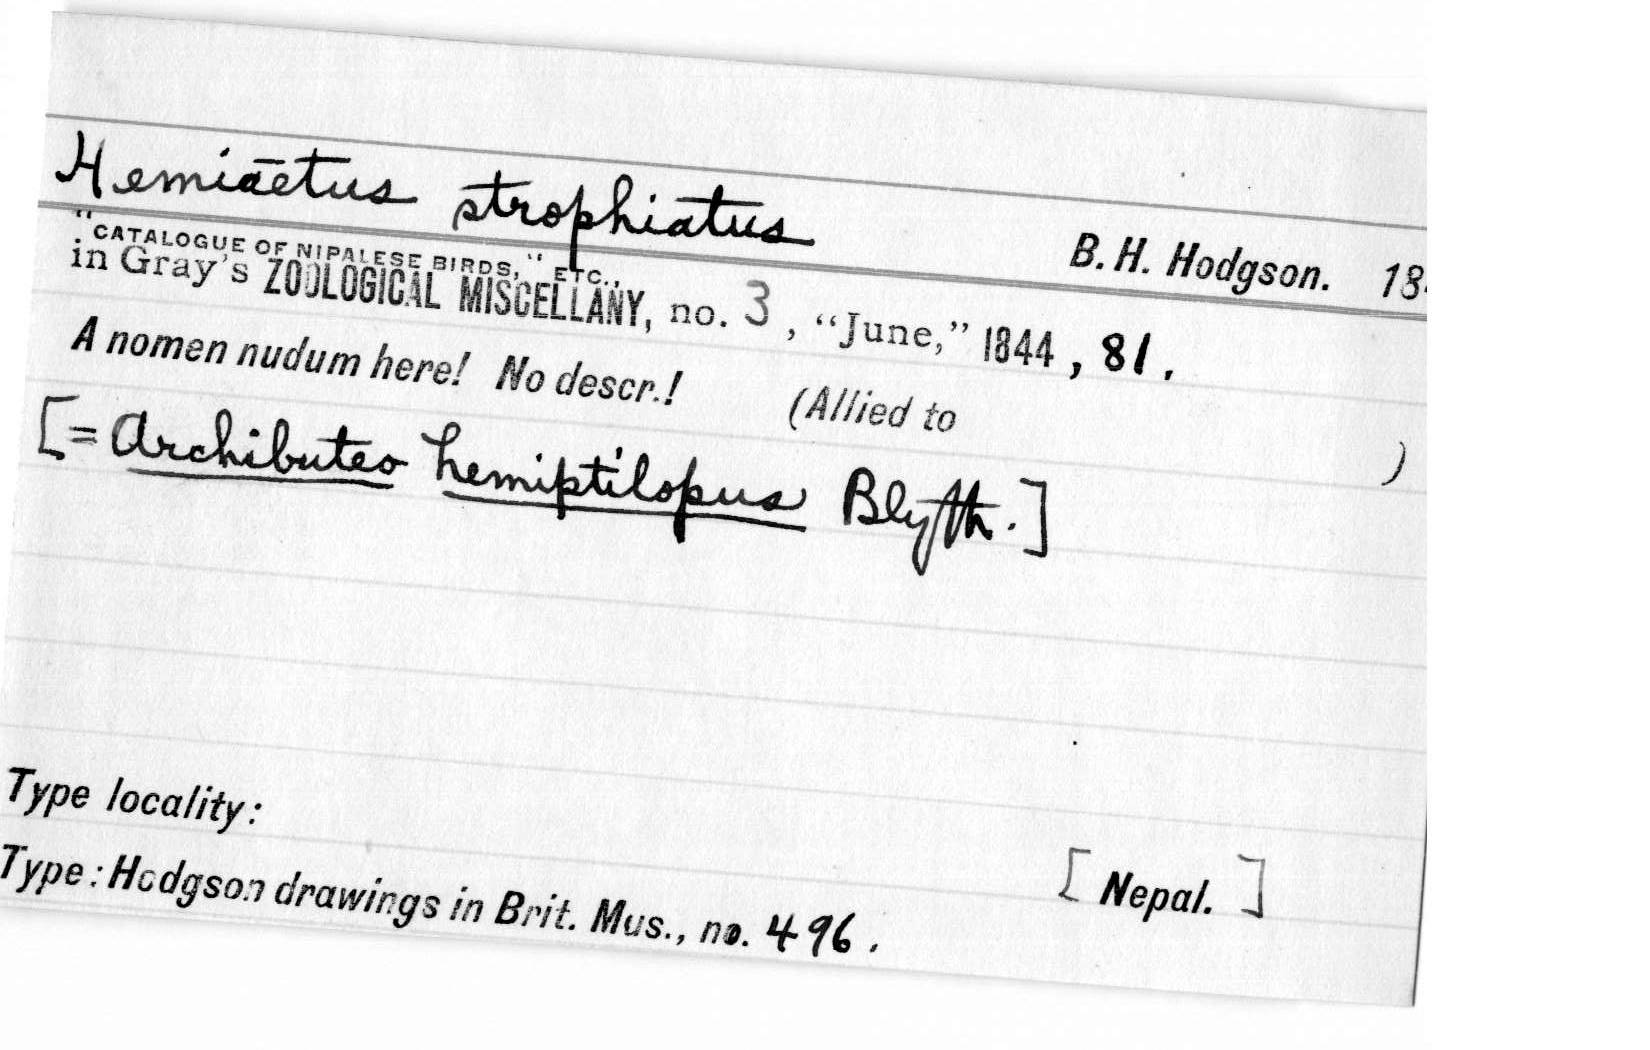 Hemiāetus strophiatus
B. H. Hodgson. 18
"CATALOGUE OF NIPALESE BIRDS," ETC.,
in Gray's ZOOLOGICAL MISCELLANY, no. 3, "June," 1844, 81.
A nomen nudum here! No descr.! (Allied to )
[= Archibuteo hemiptilopus Blyth.]
Type locality: [Nepal.]
Type: Hodgson drawings in Brit. Mus., no. 496.